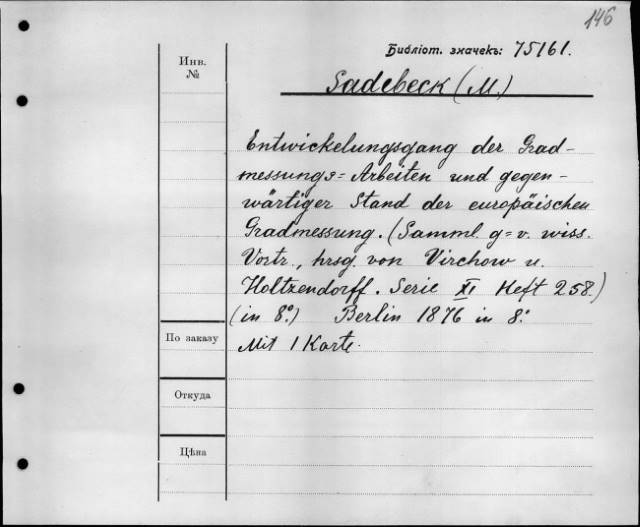 146
Библіот. значекъ: 75161.
Инв.
№
Sadebeck (M.)
Entwickelungsgang der Grad-
messungs= Arbeiten und gegen-
wärtiger Stand der europäischen
Gradmessung. (Samml. g=v. wiss.
Vortr., hrsg. von Virchow u.
Holtzendorff. Serie XI Heft 258.)
(in 8°.) Berlin 1876 in 8°.
По заказу
Mit 1 Karte.
Откуда
Цѣна